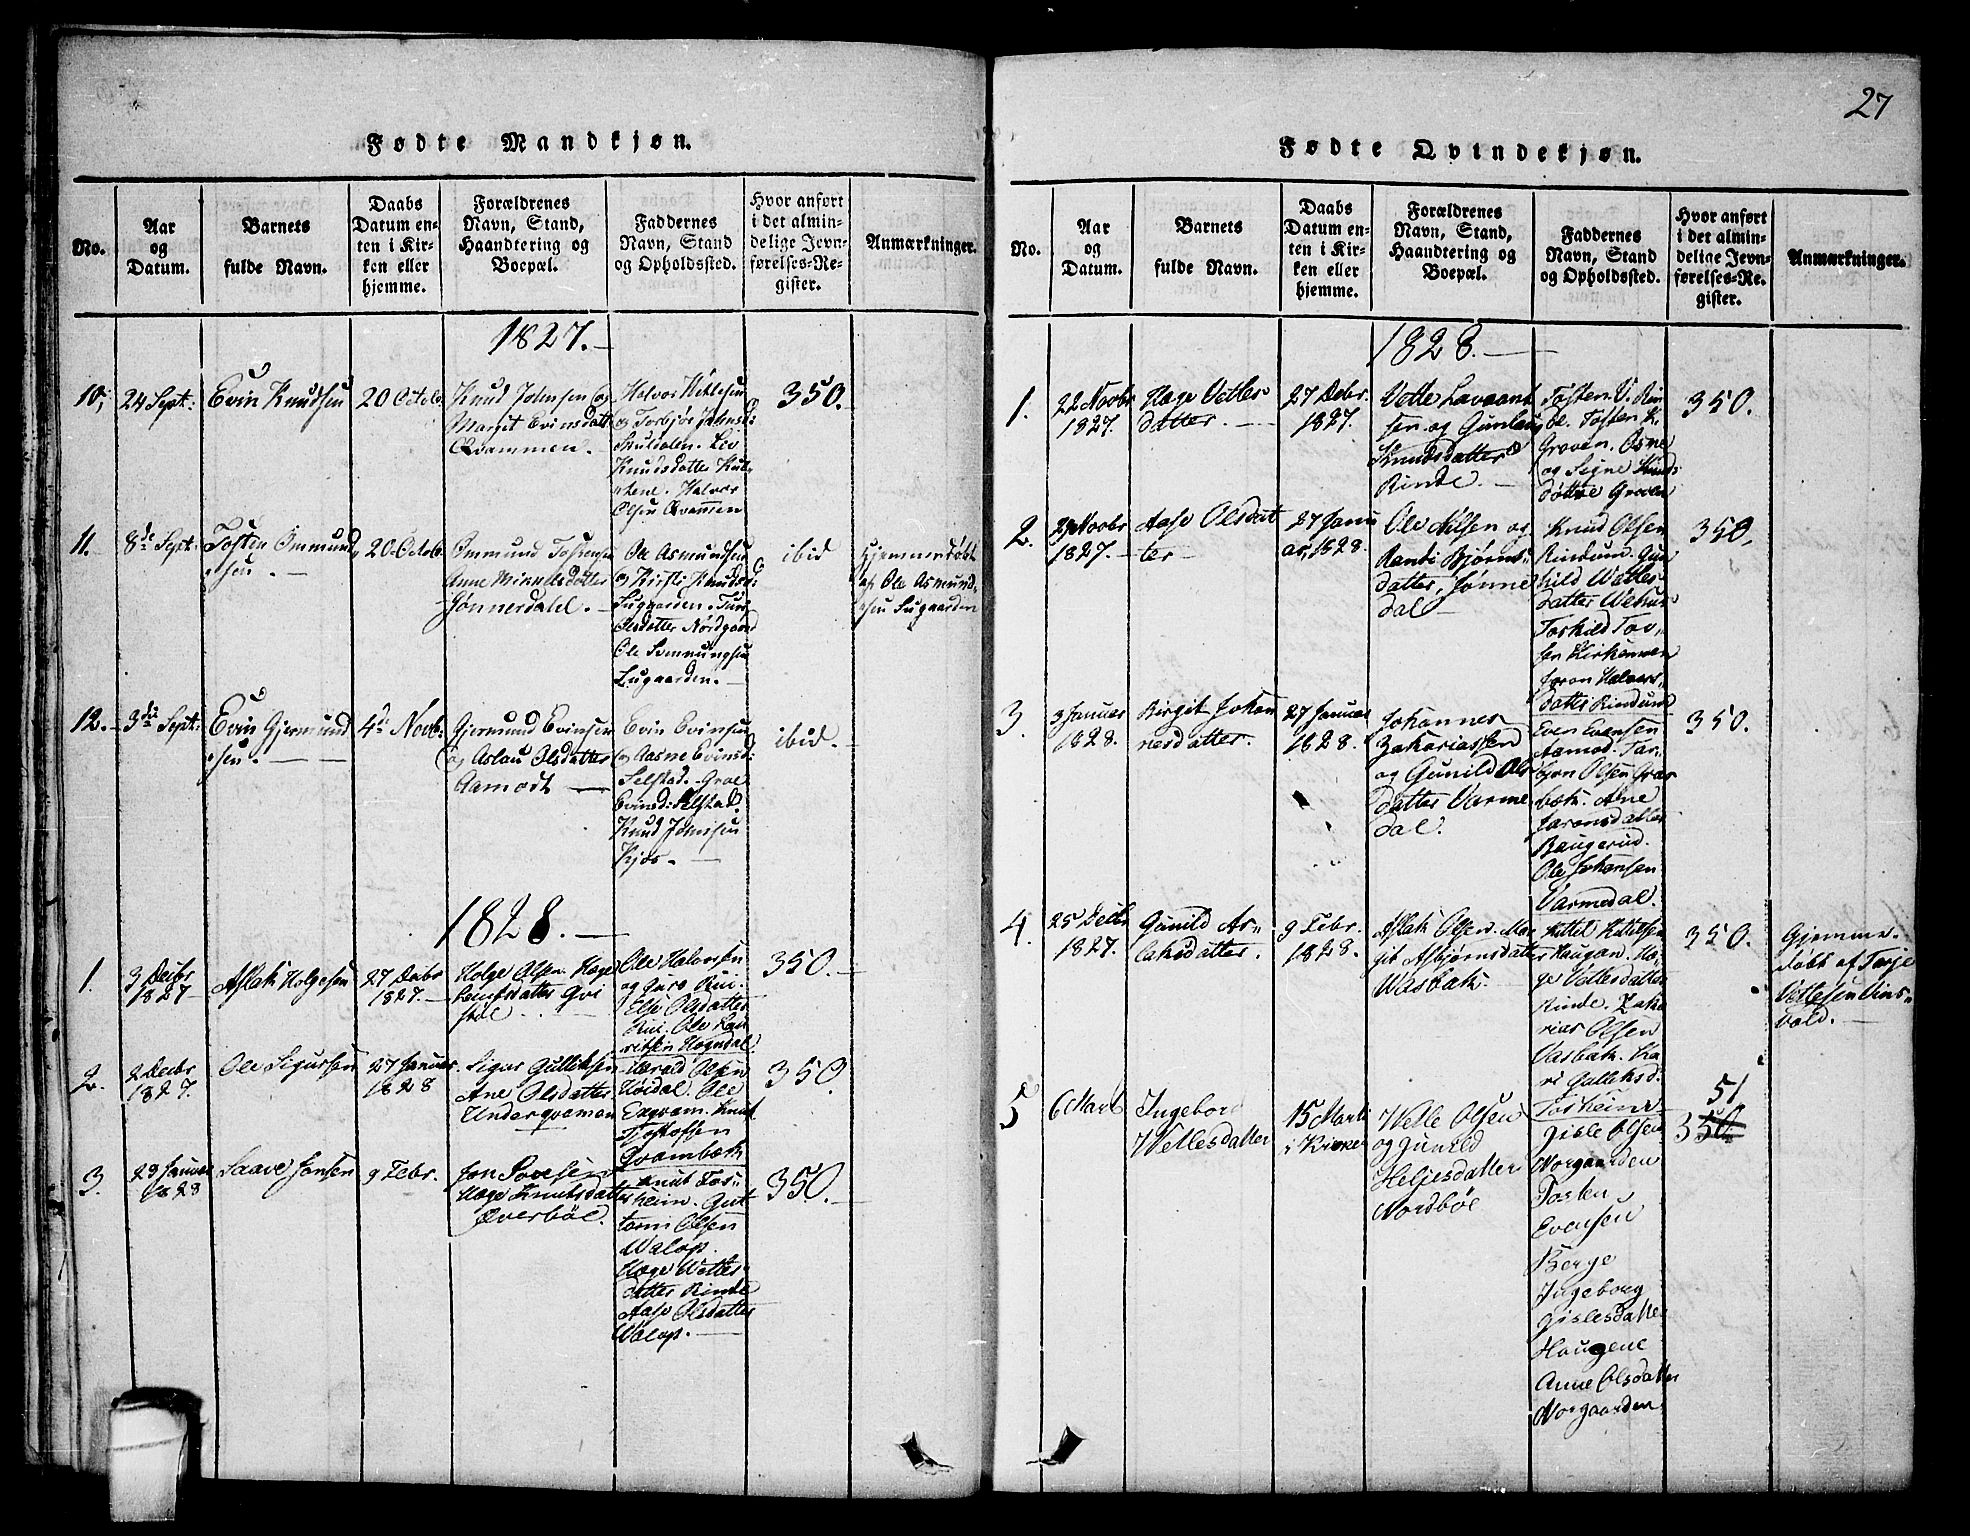 27
Fødte Mandkjøn.
No.
Aar
og
Datum.
Barnets
fulde Navn.
Daabs
Datum en-
ten i Kir-
ken eller
hjemme.
Forældrenes
Navn, Stand,
Haandtering og
Boepæl.
Faddernes
Navn, Stand
og Opholdssted.
Hvor anført
i det almin-
delige Jevn-
førelses-Re-
gister.
Anmærkninger.
1827.
10,
24 Sept:
Evin Knudsen
20 Octob.
Knud Johnsen og
Margit Evinsdatt
Qvammen.
Halvor Kittelsen
og Torbjør Johnsd:
Liv
Knudsdatter
Halvor
Olsen Qvammen
350.
11.
8de Sept.
Tosten Ommund
sen.
20 Octob.
Ommund Tostensen
Anne Mikkelsdatter
Jønnerdahl.
Ole Asmundsen
og Kirsti Knudsd:
Lugaarden. Turi
Olsdatter Nordgaard
Ole Sommungsen
Lugaarden.
ibid
Hjemmedøbt
af Ole Asmund-
sen Lugaarden
12.
3die Sept:
Evin Gjermund
sen.
4de Novb:
Gjermund Evinsen
og Aslau Olsdatter
Aamodt
Evin Evinsen
og Aasne Evinsd:
Selstad. Groe
Evinsd: Selstad.
Knud Johnsen
Kjos.
ibid.
1828.
1.
3 Decbr
1827
Aslak Helgesen
27 Decbr
1827.
Helge Olsen. Hæge
Qvi
Ole Halvorsen
og Guro Rui.
Else Olsdatter
Rui. Ole Lau
ritsen Hogndal.
350.
2.
2 Decbr
1827.
Ole Sigursen
27 Januar
1828
Sigur Gulliksen
Ane Olsdatter
Underqvammen
Harald Olsen
Ole
Exqvam. Knut
Tjostofsen
Qvambæk
350
3.
29 Januar
1828
Saave Jonsen
9 Febr.
Jon Sovesen
Hæge Knutsdatter
Øverbøe.
Knut Tos-
heim. Gut
torm Olsen
Walop.
Hæge Wetles-
datter Rinde
Aase Olsdatter
Walop.
350.
Fødte Qvindekjøn.
No.
Aar
og
Datum.
Barnets
fulde Navn.
Daabs
Datum en-
ten i Kir-
ken eller
hjemme.
Forældrenes
Navn, Stand,
Haandtering og
Boepæl.
Faddernes
Navn, Stand
og Opholdssted.
Hvor anført
i det almin-
delige Jevn-
førelses-Re-
gister.
Anmærkninger.
1828.
1.
22 Novbr
1827.
Hæge Vetles-
datter.
27 Debr.
1827.
Vetle Lavrant
sen og Gunlau
Knudsdatter
Rinde.
Tosten V. Rin
de. Tosten K.
Groven. Osne
og Signe Knud-
døttre Groven
350.
2.
Novbr
1827.
Aase Olsdat
ter
27 Janu
ar, 1828.
Ole Nilsen og
Randi Bjørns-
datter, Jønne
dal
Knud Olsen
Rindum. Gun
hild Wetles-
datter
Torkild Tov-
sen Kirkemoen
Joron Halvors-
datter Rindum
350.
3.
3 Januar
1828.
Birgit Johan
nesdatter.
27 Januar
1828.
Johannes
Zakariassen
og Gunild Ols
datter Varme
dal.
Even Evensen
Aamod. Tor
bjørn Olsen
bæk. Ane
Jaransdatter
Baugerud.
Ole Johansen
Varmedal.
350.
4.
25 Decbr
1827.
Gunild As-
laksdatter.
9 Febr.
1828.
Aslak Olsen. Mar
git Asbjørnsdatter
Wasbæk.
Kittel Kittelsen
Haugan. Hæ-
ge Vetlesdatter
Rinde. Zaka
rias Olsen
Vasbæk. Ka
ri Gulleksd.
Tosheim.
350.
Gjemme-
døbt af Tarje
Vetlesen Vins-
vold.
5
6 Marts
Ingebord
Wetlesdatter
15 Marts
i Kirken
Wetle Olsen
og Gunild
Heljesdatter
Nordbøe
Gisle Olsen
Norgaarden
Tosten
Evensen
Berge
Ingeborg
Gislesdatter
Haugene
Anne Olsdatter
Norgaarden
51
350.